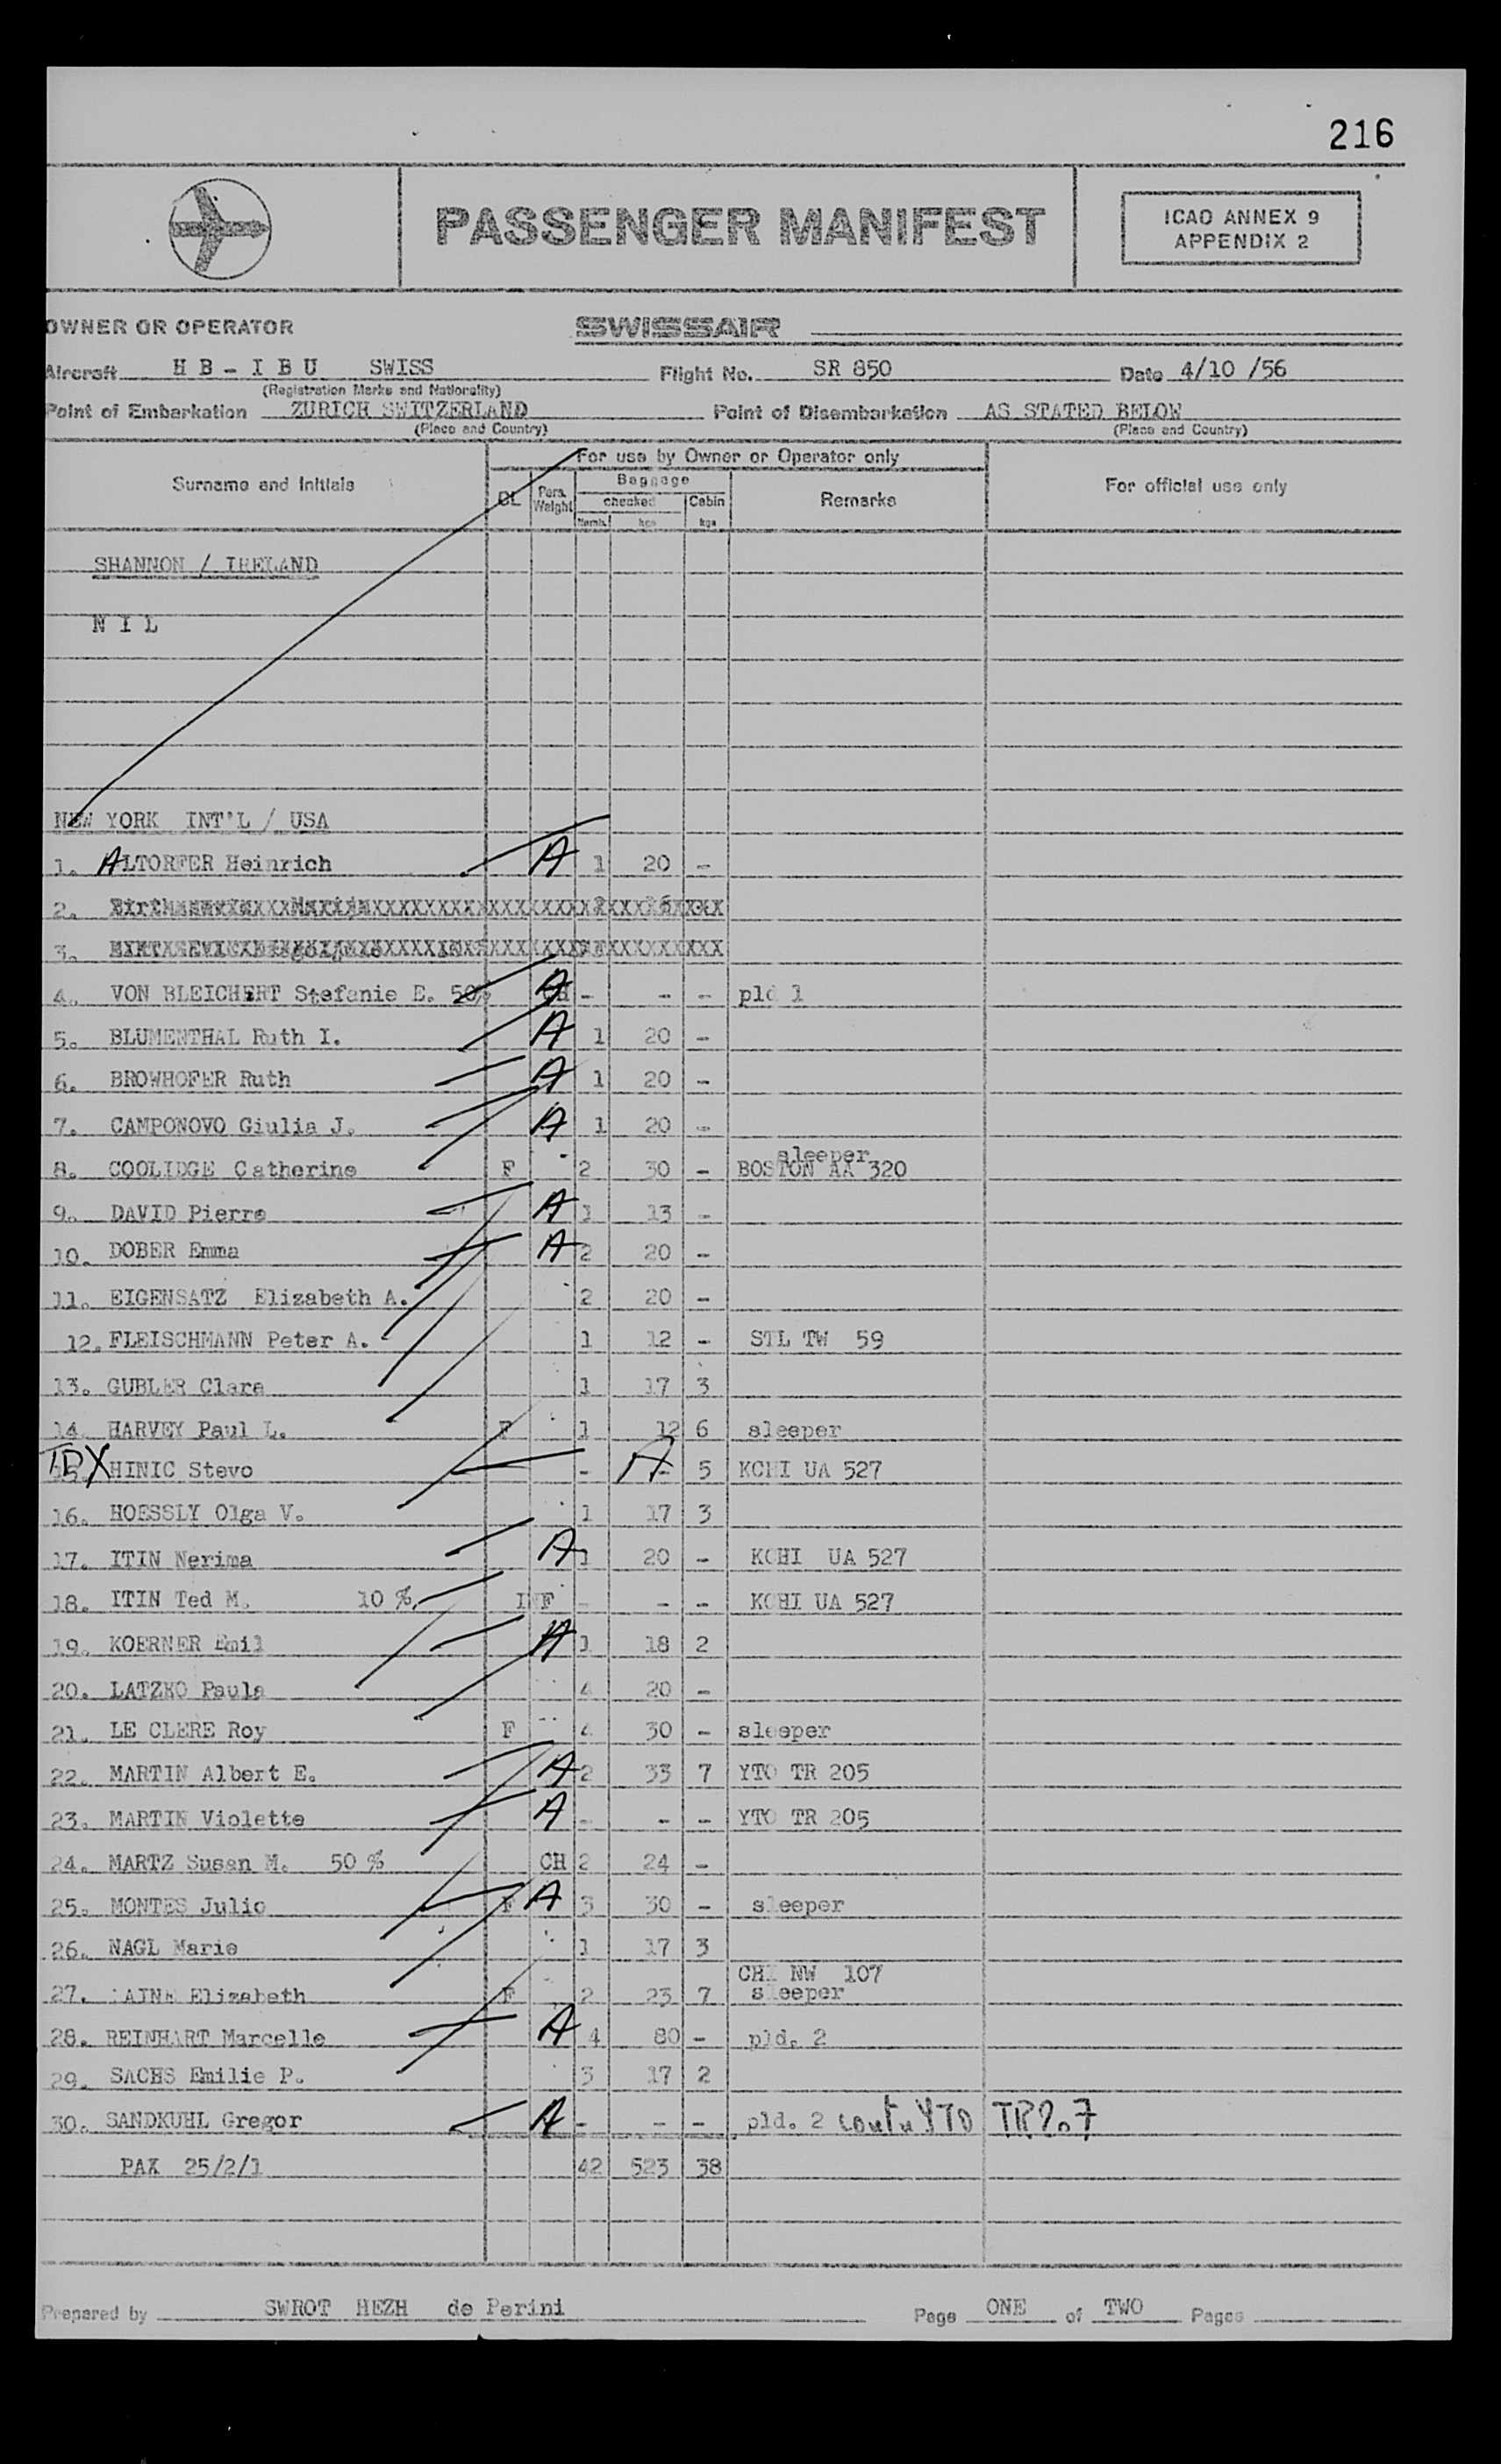 216
PASSENGER MANIFEST
ICAO ANNEX 9
APPENDIX 2
OWNER OR OPERATOR SWISSAIR
Aircraft H B - I B U SWISS Flight No. SR 850 Date 4/10 /56
(Registration Marks and Nationality)
Point of Embarkation ZURICH SWITZERLAND Point of Disembarkation AS STATED BELOW
(Place and Country) (Place and Country)
For use by Owner or Operator only
Surname and Initials CL Pers. Weight Baggage checked Cabin Remarks For official use only
Numb. kgs kgs
SHANNON / IRELAND
N I L
NEW YORK INT'L / USA
1. ALTORFER Heinrich A 1 20 -
2.
3.
4. VON BLEICHERT Stefanie E. 50% CH A - - - pld 1
5. BLUMENTHAL Ruth I. A 1 20 -
6. BROWHOFER Ruth A 1 20 -
7. CAMPONOVO Giulia J. A 1 20 -
8. COOLIDGE Catherine F 2 30 - sleeper
BOSTON AA 320
9. DAVID Pierre A 1 13 -
10. DOBER Emma A 2 20 -
11. EIGENSATZ Elizabeth A. 2 20 -
12. FLEISCHMANN Peter A. 1 12 - STL TW 59
13. GUBLER Clara 1 17 3
14. HARVEY Paul L. F 1 12 6 sleeper
15. HINIC Stevo - A - 5 KCHI UA 527
16. HOESSLY Olga V. 1 17 3
17. ITIN Nerima A 1 20 - KCHI UA 527
18. ITIN Ted M. 10 % INF - - - KCHI UA 527
19. KOERNER Emil A 1 18 2
20. LATZKO Paula 4 20 -
21. LE CLERE Roy F 4 30 - sleeper
22. MARTIN Albert E. A 2 33 7 YTO TR 205
23. MARTIN Violette A - - - YTO TR 205
24. MARTZ Susan M. 50 % CH 2 24 -
25. MONTES Julio F A 3 30 - sleeper
26. NAGL Marie 1 17 3
CHI NW 107
27. Elizabeth F 2 23 7 sleeper
28. REINHART Marcelle A 4 80 - pld. 2
29. SACHS Emilie P. 3 17 2
30. SANDKUHL Gregor A - - - pld. 2 YTO
PAX 25/2/1 42 523 38
Prepared by SWROT HEZH de Perini Page ONE of TWO Pages